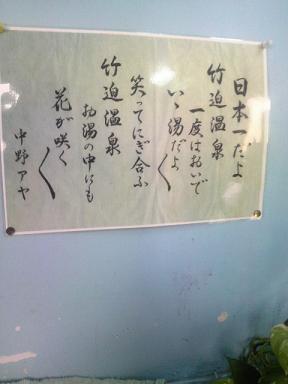 日本一だよ
竹迫温泉
一度はおいで
いゝ湯だよ〱
笑ってにぎ合ふ
竹迫温泉
お湯の中にも
花が咲く〱
中野アヤ